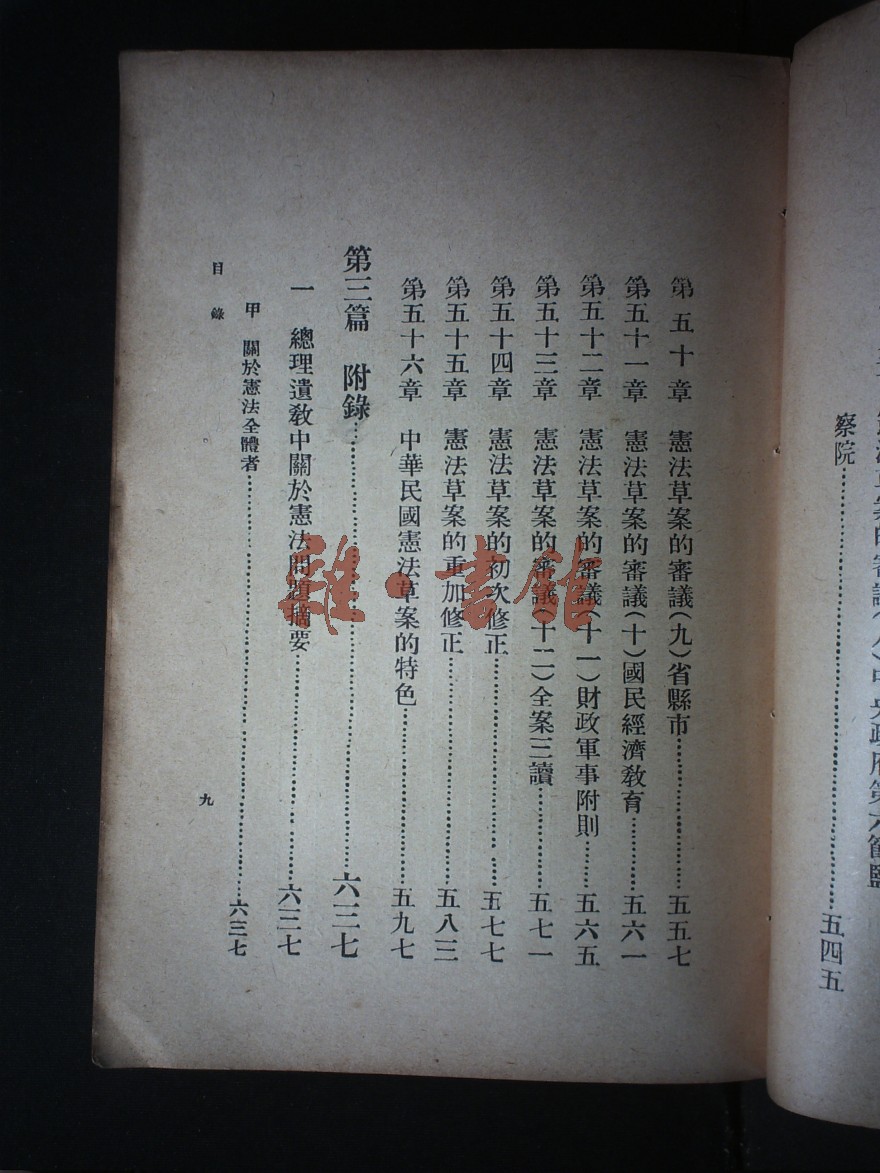 察院……五四五
第五十章 憲法草案的審議(九)省縣市……五五七
第五十一章 憲法草案的審議(十)國民經濟教育……五六一
第五十二章 憲法草案的審議(十一)財政軍事附則……五六五
第五十三章 憲法草案的審議(十二)全案三讀……五七一
第五十四章 憲法草案的初次修正……五七七
第五十五章 憲法草案的重加修正……五八三
第五十六章 中華民國憲法草案的特色……五九七
第三篇 附錄……六三七
一 總理遺教中關於憲法問題摘要……六三七
甲 關於憲法全體者……六三七
目錄
九
雜·書館